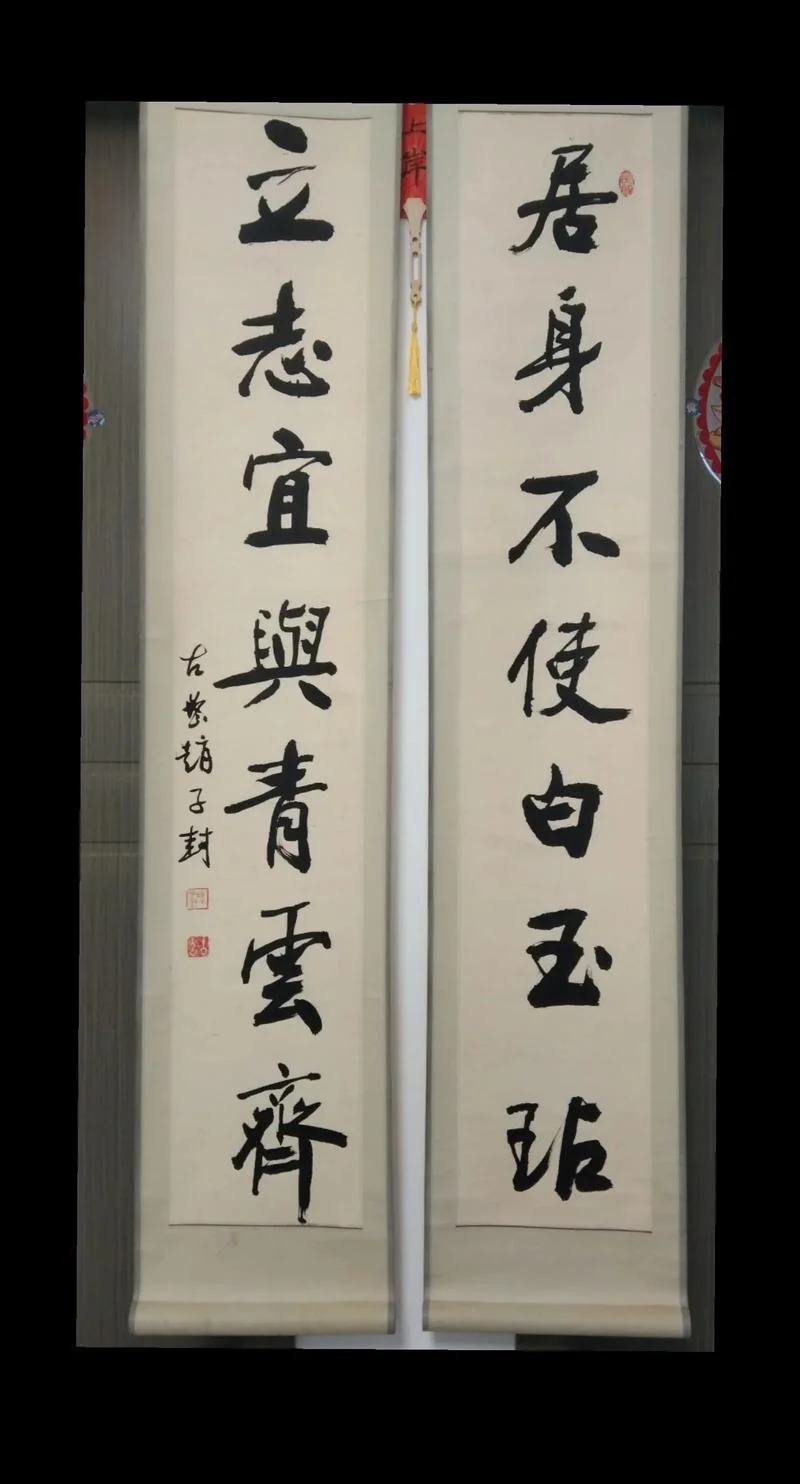 居身不使白玉玷
上岸
立志宜與青雲齊
古蔡趙子封